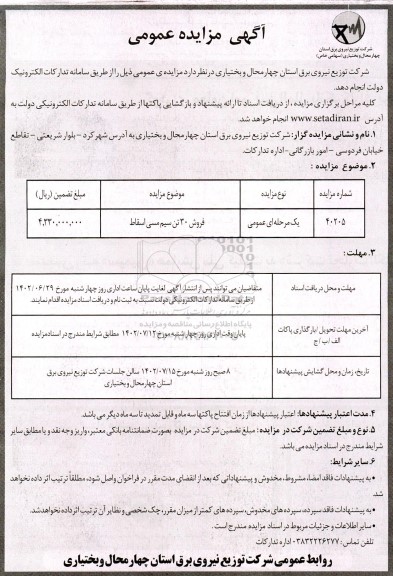 آگهی مزایده عمومی
شرکت توزیع نیروی برق استان
چهارمحال و بختیاری (سهامی خاص)
شرکت توزیع نیروی برق استان چهارمحال و بختیاری در نظر دارد مزایده ی عمومی ذیل را از طریق سامانه تدارکات الکترونیک
دولت انجام دهد.
کلیه مراحل برگزاری مزایده ، از دریافت اسناد تا ارائه پیشنهاد و بازگشایی پاکتها از طریق سامانه تدارکات الکترونیکی دولت به
آدرس www.setadiran.ir انجام خواهد شد.
۱.نام و نشانی مزایده گزار: شرکت توزیع نیروی برق استان چهارمحال و بختیاری به آدرس شهرکرد - بلوار شریعتی - تقاطع
خیابان فردوسی - امور بازرگانی- اداره تدارکات.
۲.موضوع مزایده :
شماره مزایده نوع مزایده موضوع مزایده مبلغ تضمین (ریال)
۴۰۲۰۵ یک مرحله ای عمومی فروش ۳۰ تن سیم مسی اسقاط ۴,۳۳۰,۰۰۰,۰۰۰
۳. مهلت :
مهلت و محل دریافت اسناد متقاضیان می توانند پس از انتشار آگهی لغایت پایان ساعت اداری روز چهارشنبه مورخ ۱۴۰۲/۰۶/۲۹
از طریق سامانه تدارکات الکترونیکی دولت نسبت به ثبت نام و دریافت اسناد مزایده اقدام نمایند.
آخرین مهلت تحویل /بارگذاری پاکات
الف / ب / ج
پایان وقت اداری روز چهارشنبه مورخ ۱۴۰۲/۰۷/۱۲ مطابق شرایط مندرج در اسناد مزایده
تاریخ، زمان و محل گشایش پیشنهادها
۸ صبح روز شنبه مورخ ۱۴۰۲/۰۷/۱۵ سالن جلسات شرکت توزیع نیروی برق
استان چهارمحال و بختیاری
۴. مدت اعتبار پیشنهادها: اعتبار پیشنهادها از زمان افتتاح پاکتها سه ماه و قابل تمدید تا سه ماه دیگر می باشد.
۵. نوع و مبلغ تضمین شرکت در مزایده : مبلغ تضمین شرکت در مزایده بصورت ضمانتنامه بانکی معتبر، واریز وجه نقد و یا مطابق سایر
شرایط مندرج در اسناد مزایده می باشد.
۶. سایر شرایط:
• به پیشنهادات فاقد امضا، مشروط، مخدوش و پیشنهاداتی که بعد از انقضای مدت مقرر در فراخوان واصل شود، مطلقاً ترتیب اثر داده نخواهد
شد.
• به پیشنهادات فاقد سپرده، سپرده های مخدوش، سپرده های کمتر از میزان مقرر، چک شخصی و نظایر آن ترتیب اثر داده نخواهد شد.
• سایر اطلاعات و جزئیات مربوط در اسناد مزایده مندرج است .
تلفن تماس: ۰۳۸۳۲۲۲۶۲۷۷ اداره تدارکات
روابط عمومی شرکت توزیع نیروی برق استان چهارمحال و بختیاری